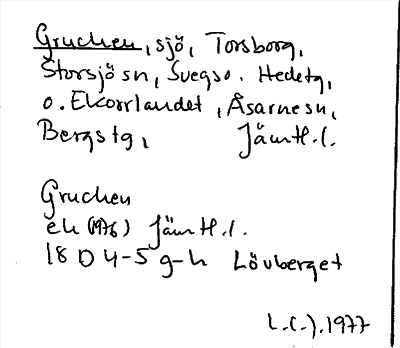 Gruchen, sjö, Torsborg,
Storsjö sn, Svegs o. Hedetg,
o. Ekorrlandet, Åsarne sn,
Bergs tg, Jämtl. l.
Gruchen
ek (1976) Jämtl. l.
18 D 4-5 g-h Lövberget
1977